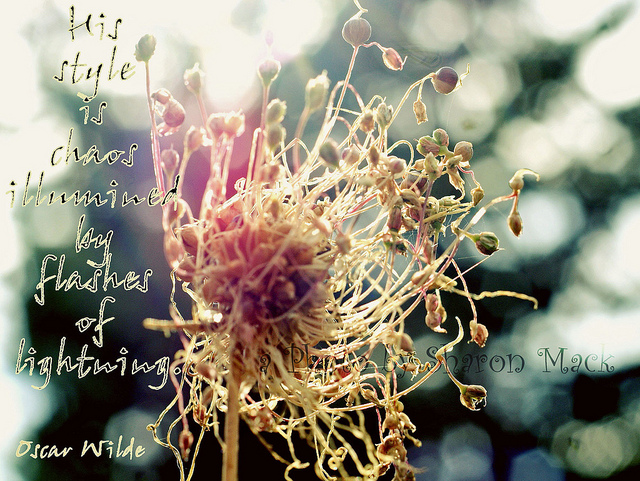 His
style
is
chaos
illumined
by
flashes
of
lightning.
a Photo by Sharon Mack
Oscar Wilde